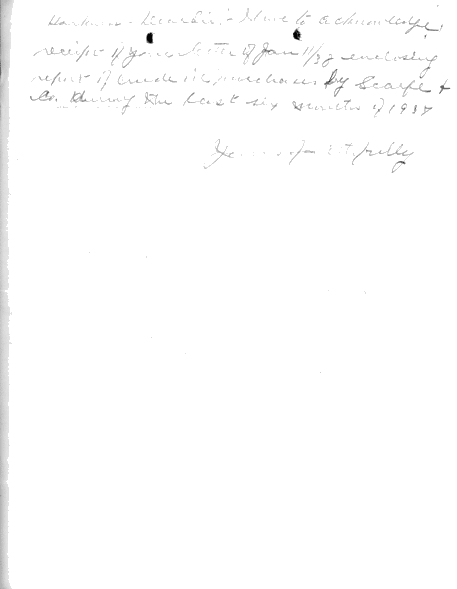 Dear Sir:- Have to acknowledge
receipt of your letter of Jan 11/38 enclosing
report of crude oil purchases by Scarfe &
Co. during the last six months of 1937
Yours